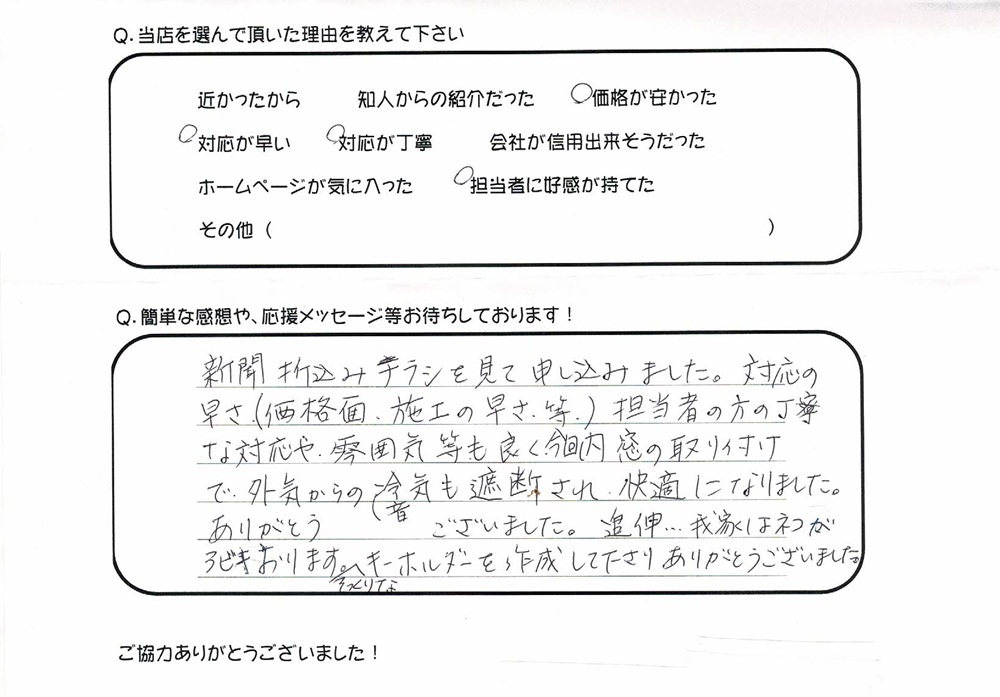 Q. 当店を選んで頂いた理由を教えて下さい
近かったから 知人からの紹介だった ○価格が安かった
○対応が早い ○対応が丁寧 会社が信用出来そうだった
ホームページが気に入った ○担当者に好感が持てた
その他（ ）
Q. 簡単な感想や、応援メッセージ等お待ちしております！
新聞折込みチラシを見て申し込みました。対応の
早さ、(価格面、施工の早さ、等、) 担当者の方の丁寧
な対応や、雰囲気等も良く今回内窓の取り付け
で、外気からの冷気も遮断され、快適になりました。
(音
ありがとう ございました。 追伸…我家はネコが
3ビキおります。キーホルダーを作成して下さりありがとうございました。
そっくりな
ご協力ありがとうございました！